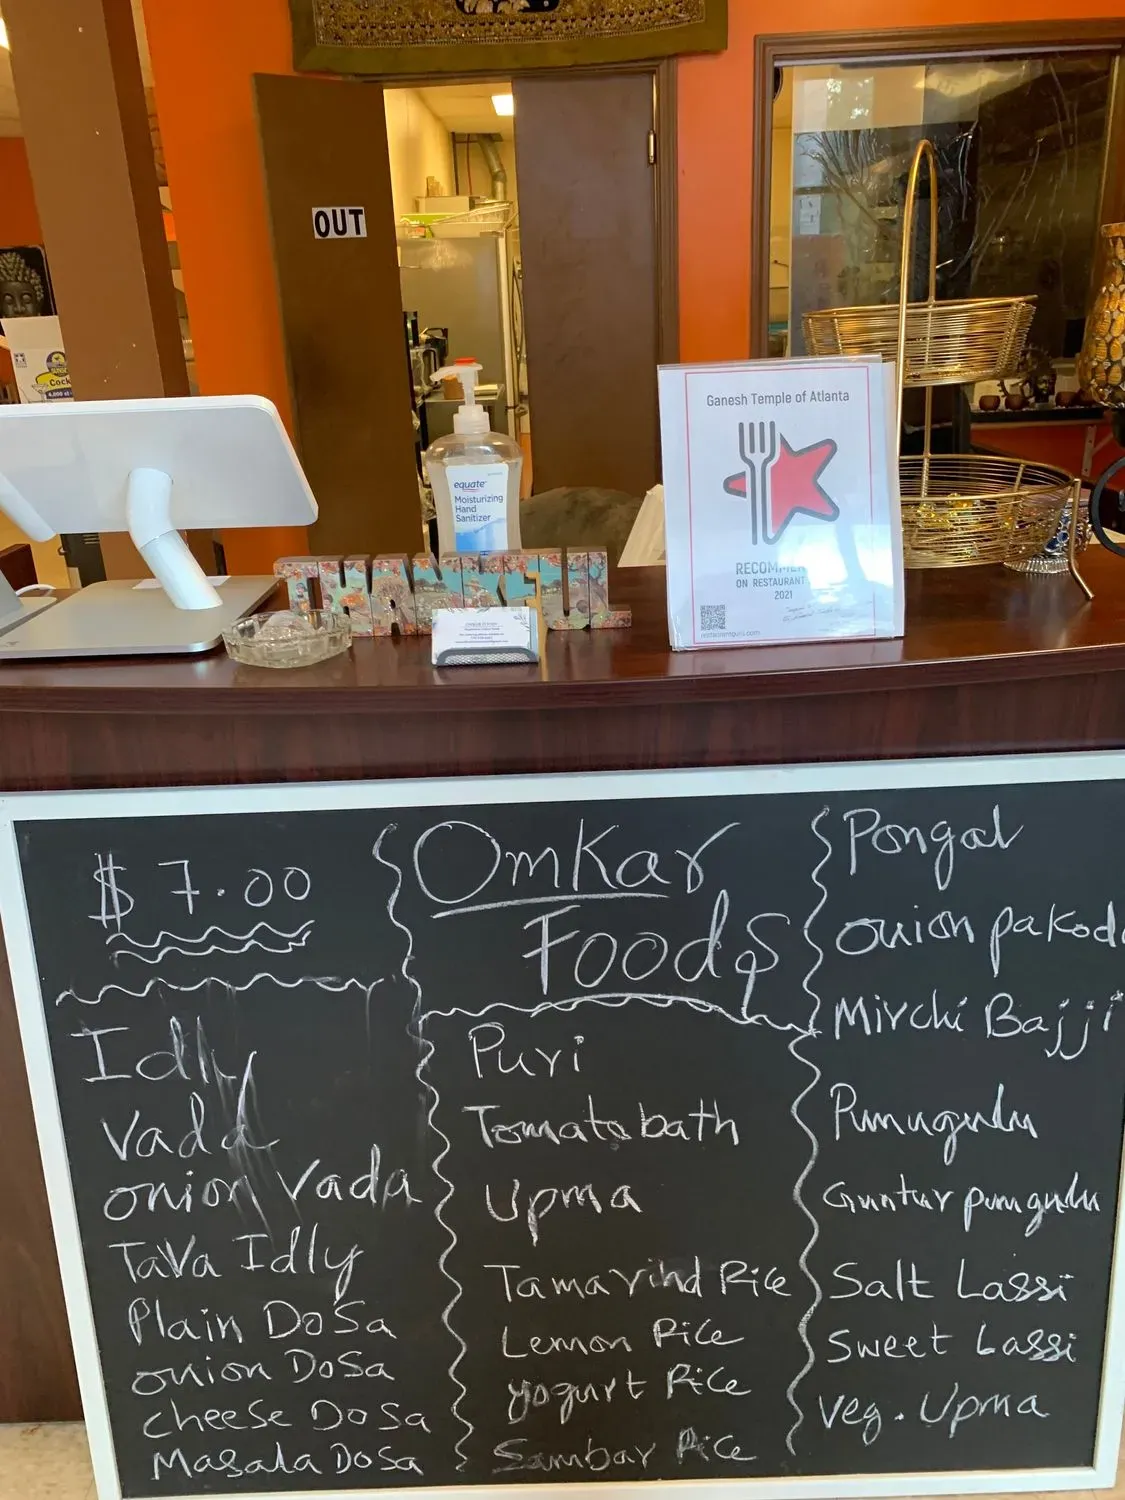 OUT
Cock
equate
Moisturizing
Hand
Sanitizer
THANKFUL
Ganesh Temple of Atlanta
RECOMME
ON RESTAURANT
2021
$7.00
Idly
Vada
onion Vada
Tava Idly
Plain DoSa
onion DoSa
cheese DoSa
Masala DoSa
OmKar
Foods
Puri
Tomato bath
Upma
Tamarind Rice
Lemon Rice
yogurt Rice
Sambar Rice
Pongal
onion pakoda
Mirchi Bajji
Punugulu
Guntur punugulu
Salt Lassi
Sweet Lassi
Veg. Upma